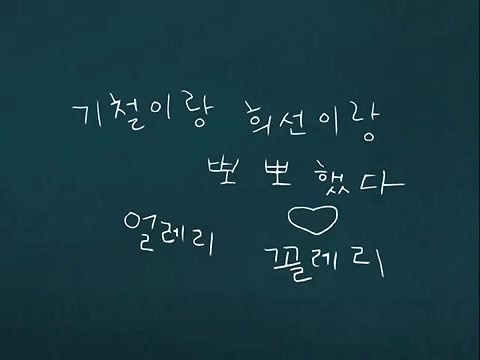 기철이랑 희선이랑
뽀뽀했다
얼레리 ♡
꼴레리